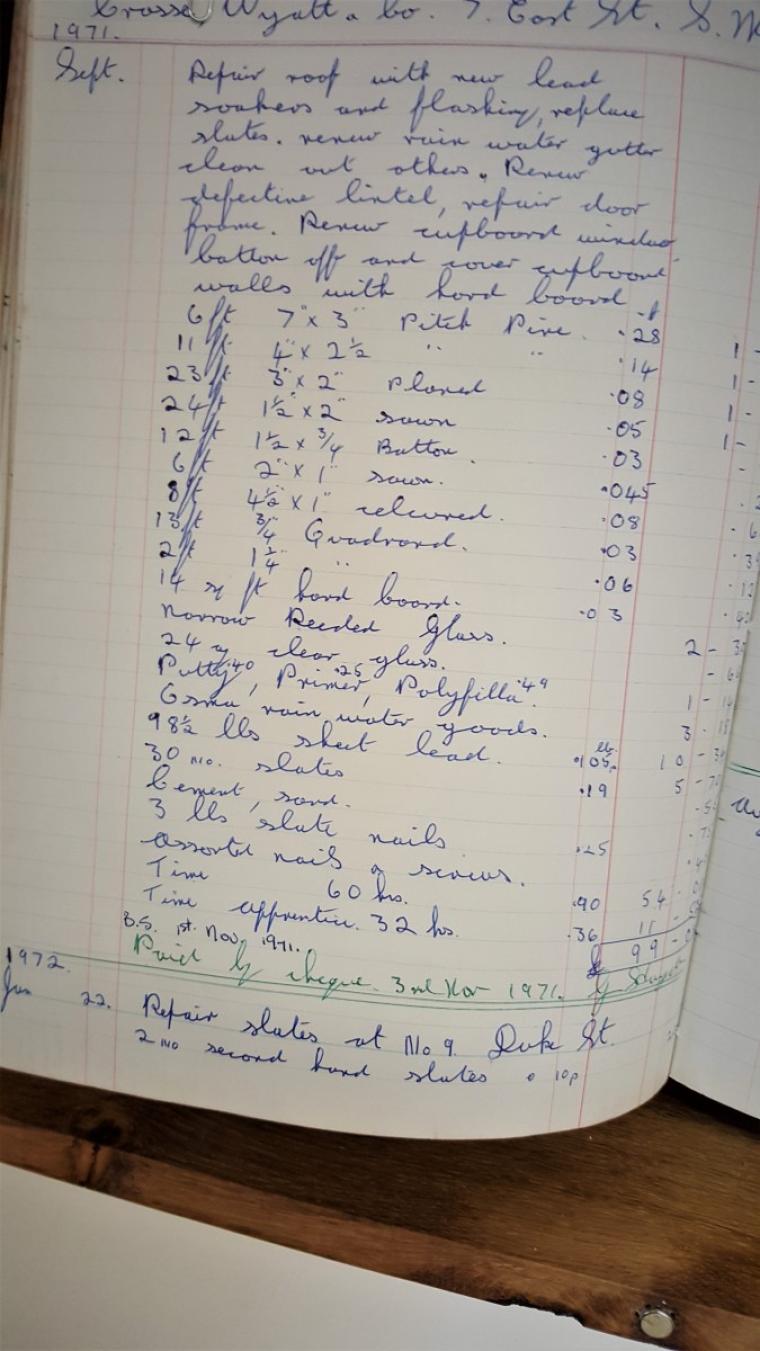 Crosse, Wyatt & Co. 7. East St. S.
1971.
Sept. Repair roof with new lead
soakers and flashing, replace
slates. renew rain water gutter
clean out others. Renew
defective lintel, repair door
frame. Renew cupboard window
batton off and cover cupboard
walls with hard board
6 ft 7" x 3" Pitch Pine. .28
11 ft 4" x 2½ " " .14 1 -
23 ft 3" x 2" Planed .08 1 -
24 ft 1½" x 2" sawn .05 1 -
12 ft 1½ x ¾ Batton. .03 1 -
6 ft 2" x 1" sawn. .045 -
8 ft 4½ x 1" .08
13 ft ¾" Quadrand. .03
2 ft 1¼" " .06
14 sq ft hard board. .03
Narrow Reeded Glass. 2 -
24 clear glass. -
Putty .40, Primer .25, Polyfilla .49. 1 -
Osma rain water goods. 3 .
98½ lbs sheet lead. .105p lb. 10 -
30 no. slates .19 5 -
Cement, sand.
3 lbs slate nails .25
assorted nails & screws.
Time 60 hrs. .90 54 .
Time apprentice. 32 hrs. .36 11 -
B.S. 1st. Nov. 1971. £ 99 -
Paid by cheque. 3rd Nov 1971.
1972.
Jan 22. Repair slates at No 9. Duke St.
2 no second hand slates @ 10p